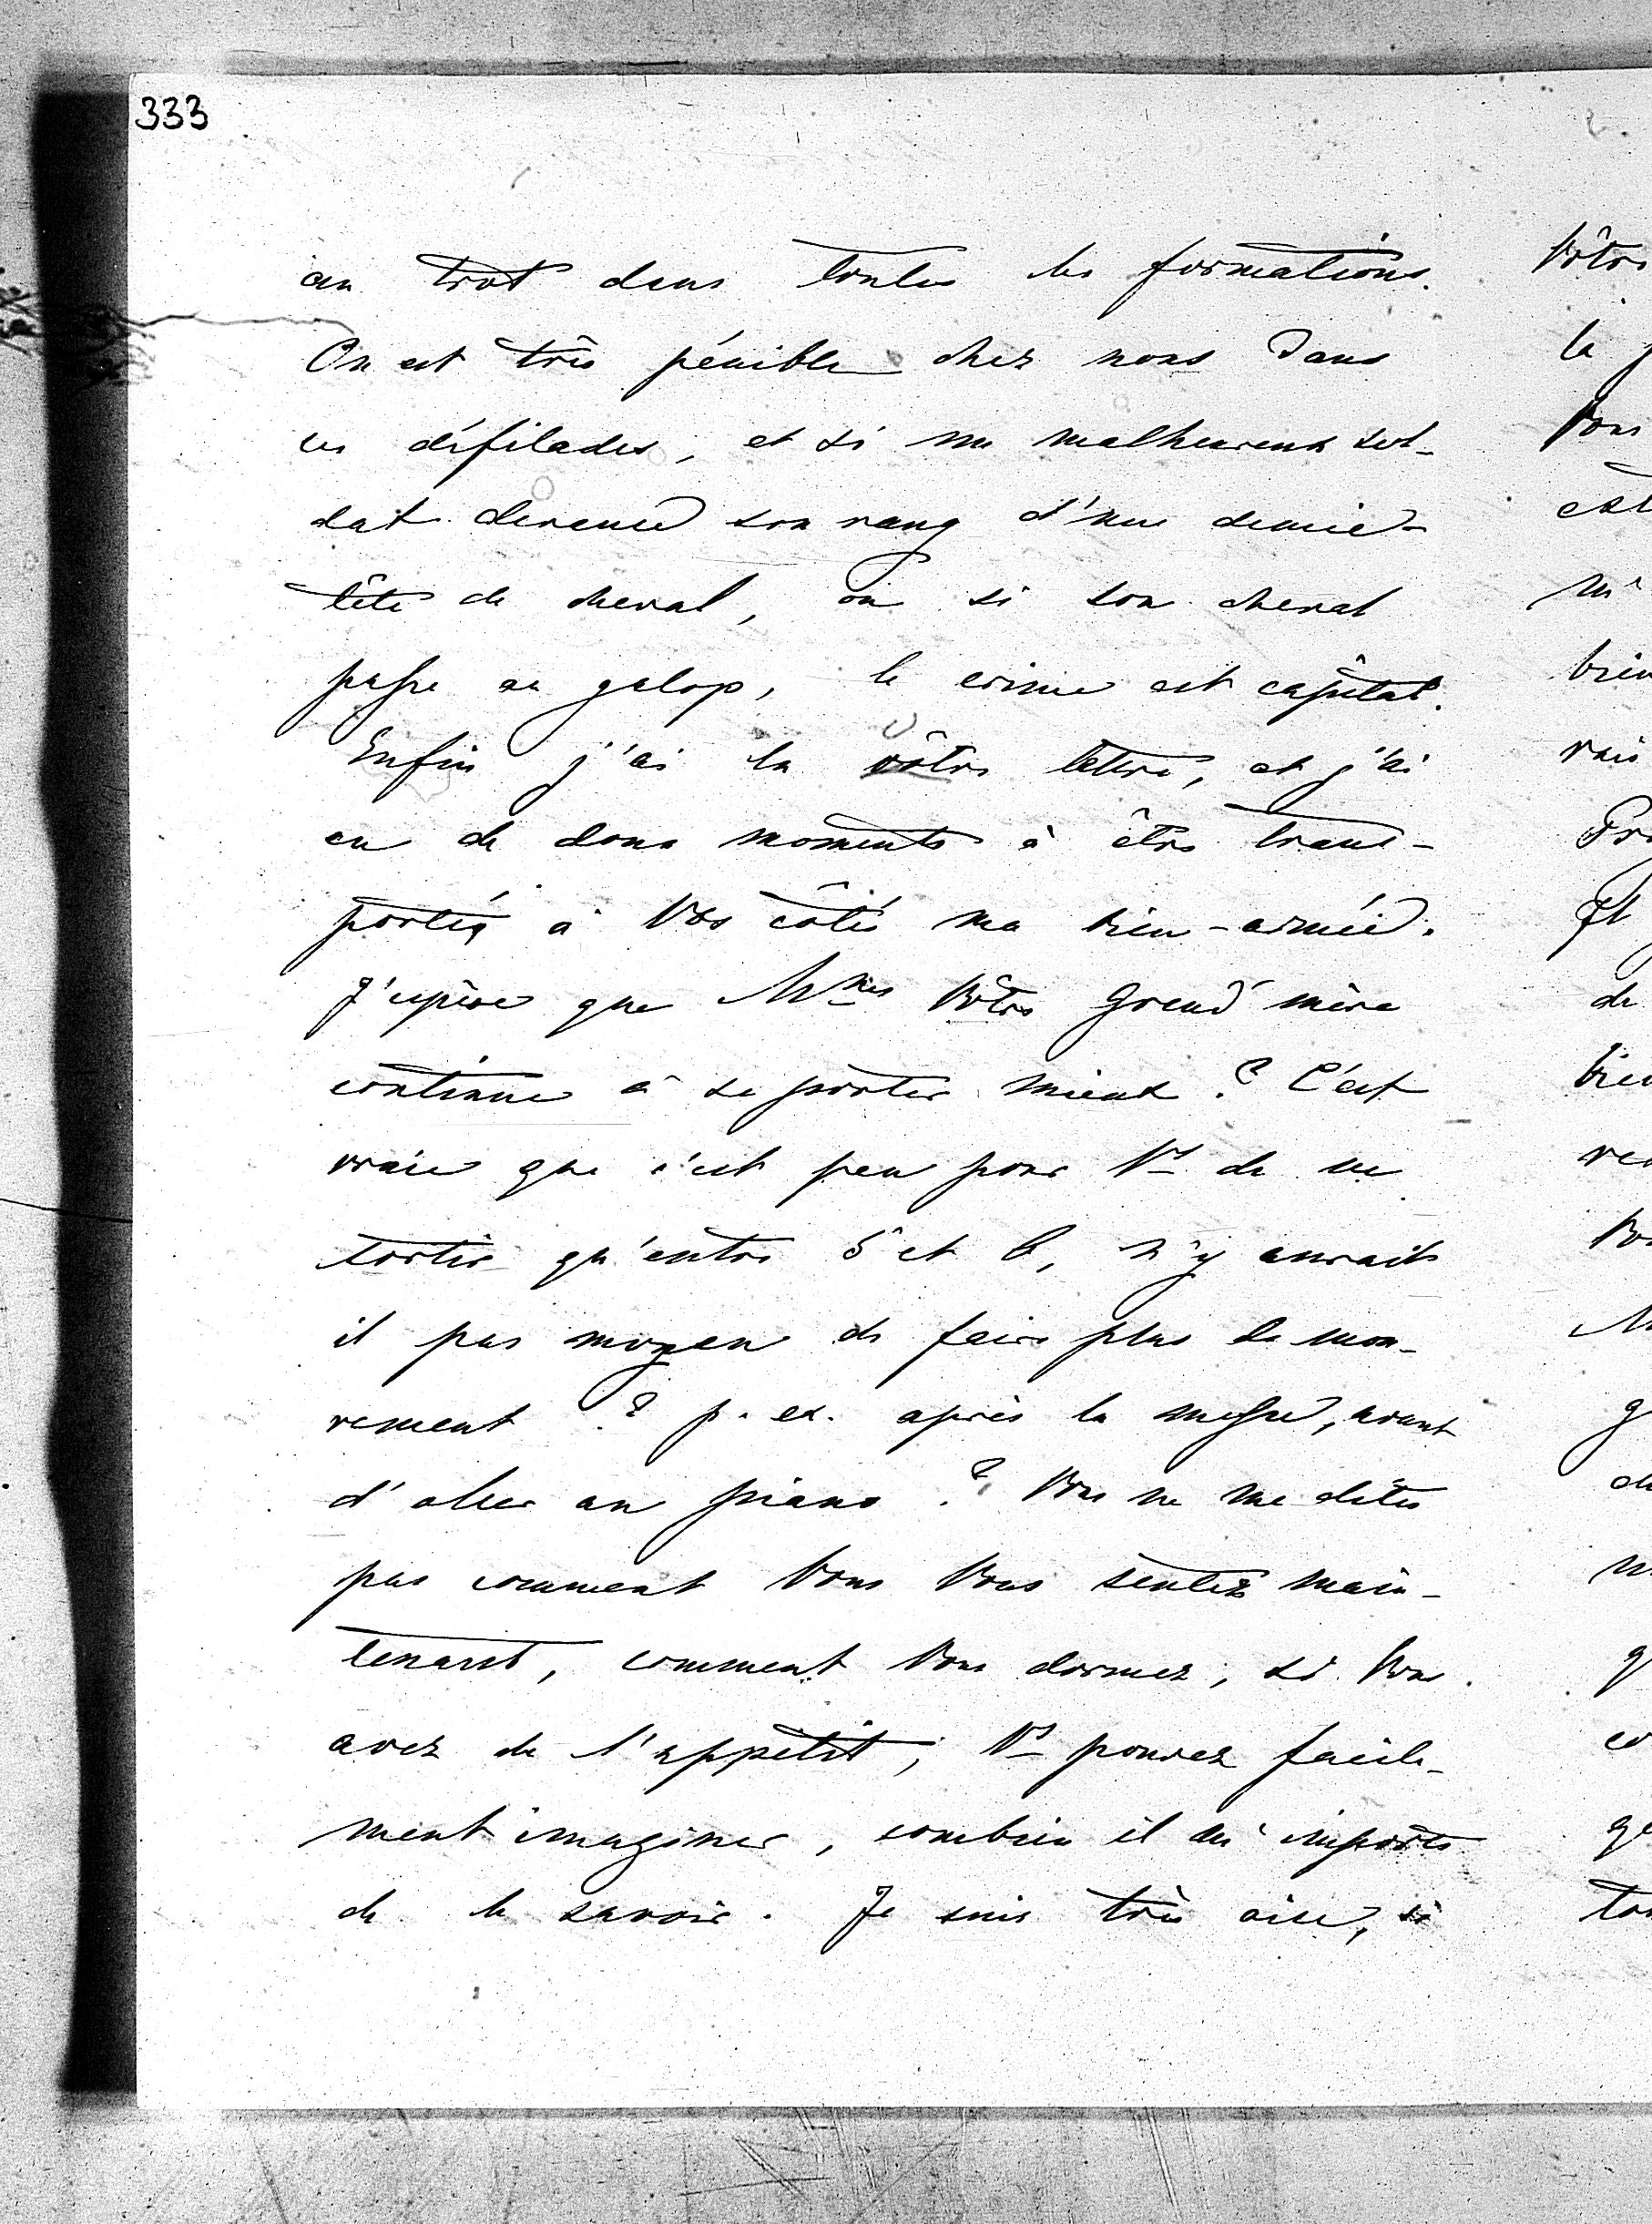 333
au trot dans toutes les formations.
On est très pénible chez nous dans
ces défilades, et si un malheureux sol-
dat devance son rang d'une demie-
tête de cheval, ou si son cheval
passe au galop, le crime est capital.
Enfin j'ai lu vôtre lettre, et j'ai
eu de doux moments à être trans-
porté à Vos côtés ma bien-aimée.
J'espère que Mme Vôtre Grand'mère
continue à se porter mieux? C'est
vraie que c'est peu pour Vs de ne
sortir qu'entre 5 et 6, n'y aurait
il pas moyen de faire plus de mou-
vement? p. ex. après la messe, avant
d'aller au piano? Vous ne me dites
pas comment Vous Vous sentez main-
tenant, comment Vous dormez, si Vous
avez de l'appétit, Vs pouvez facile-
ment imaginer, combien il m'importe
de le savoir. Je suis très aise, si
Vôtre
la
Vous
m'
bien
vais
Et
de